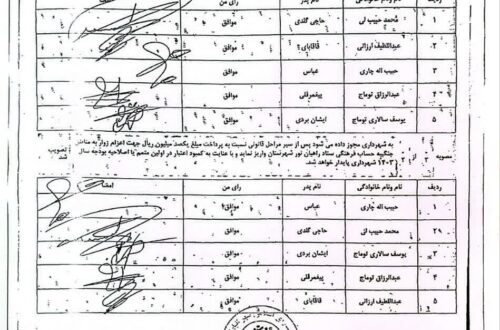 ردیف نام ونام خانوادگی نام پدر رای من
محمد حبیب لی حاجی گلدی موافق
۲ عبداللطیف ارزانی قاقابای موافق
۳ حبیب اله چاری عباس موافق
۴ عبدالرزاق توماج پیغمرقلی موافق
۵ یوسف سالاری توماج ایشان بردی موافق
به شهرداری مجوز داده می شود پس از سیر مراحل قانونی نسبت به پرداخت مبلغ یکصد میلیون ریال جهت اعزام زوار به مناطق
جنگیبه حساب فرهنگی ستاد راهیان نور شهرستان واریز نماید و با عنایت به کمبود اعتبار در اولین متمم یا اصلاحیه بودجه سال
۱۴۰۳ شهرداری پایدار خواهد شد.
مصوبه ۲ تصویب شد
ردیف نام ونام خانوادگی نام پدر رای من امضا
۱ حبیب اله چاری عباس موافق
۲ محمد حبیب لی حاجی گلدی موافق
۳ یوسف سالاری توماج ایشان بردی موافق
۴ عبدالرزاق توماج پیغمرقلی موافق
۵ عبداللطیف ارزانی قاقابای موافق